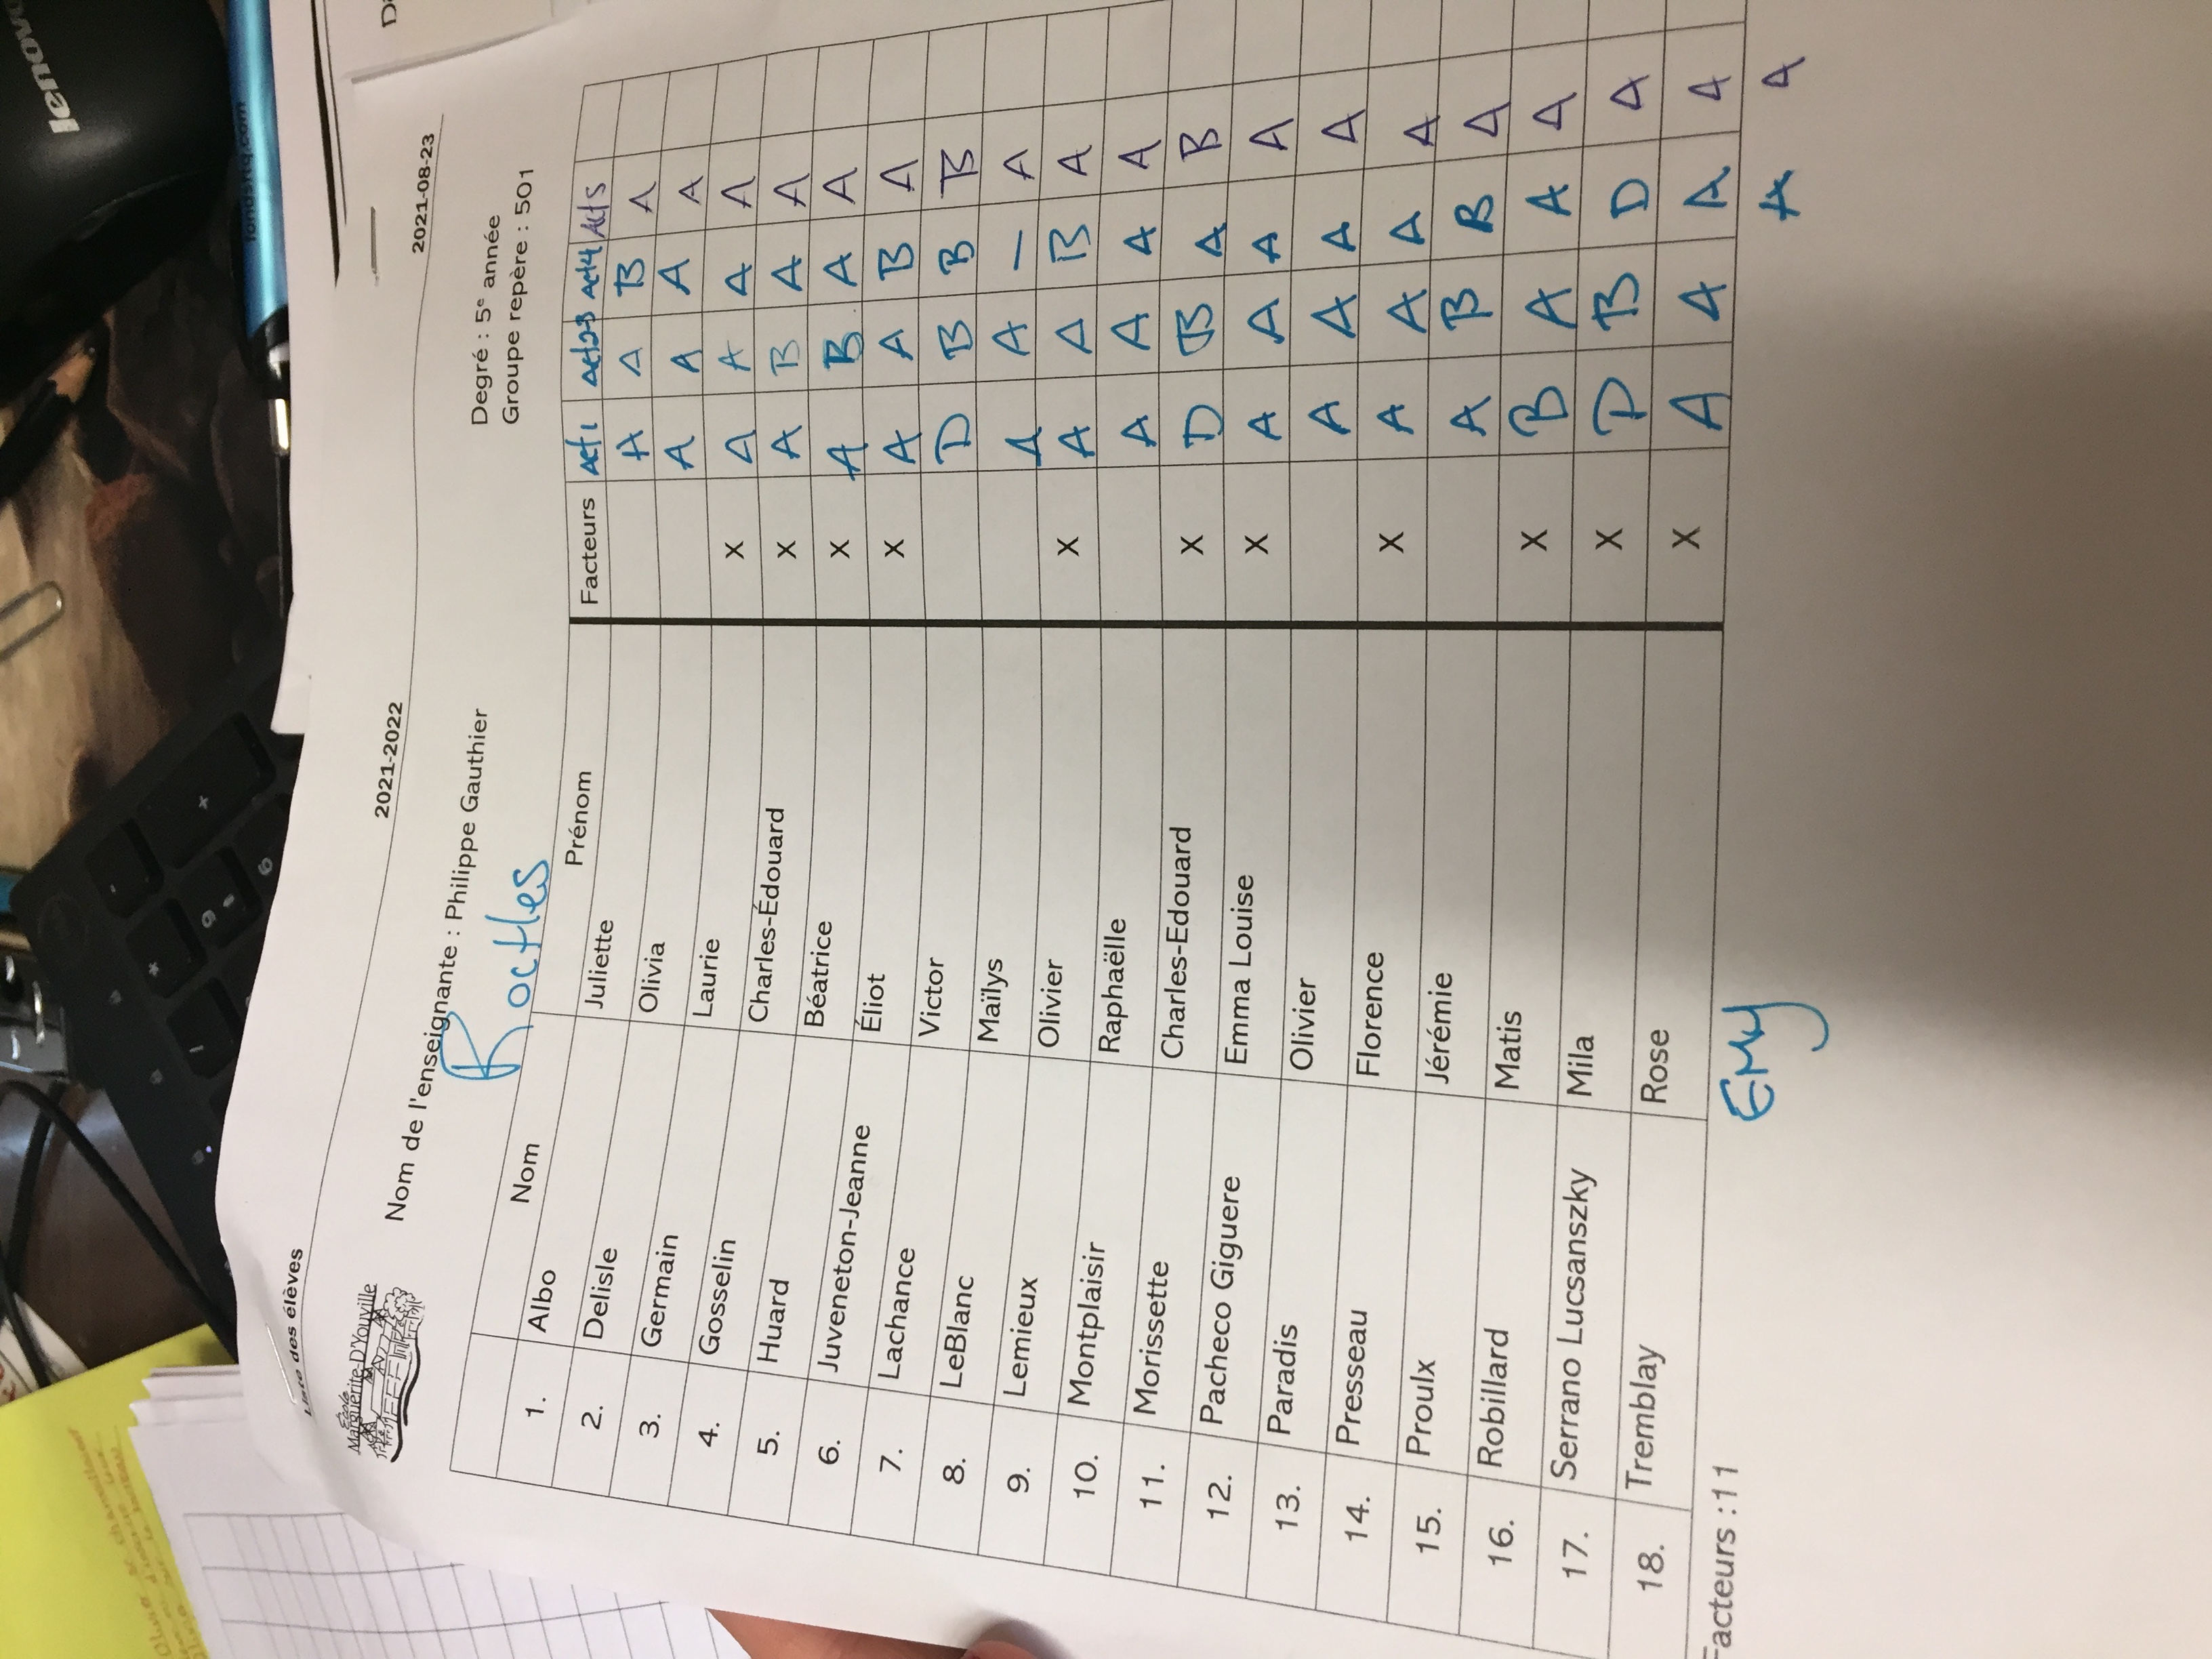 Liste des élèves 2021-2022 2021-08-23
École
Marguerite-D'Youville
Nom de l'enseignante : Philippe Gauthier Degré : 5e année
Groupe repère : 501
Roches
Nom Prénom Facteurs Act1 Act2-3 Act4 Act5
1. Albo Juliette A A B A
2. Delisle Olivia A A A A
3. Germain Laurie X A A A A
4. Gosselin Charles-Édouard X A B A A
5. Huard Béatrice X A B A A
6. Juveneton-Jeanne Éliot X A A B A
7. Lachance Victor D B B B
8. LeBlanc Maïlys A A — A
9. Lemieux Olivier X A A B A
10. Montplaisir Raphaëlle A A A A
11. Morissette Charles-Edouard X D B A B
12. Pacheco Giguere Emma Louise X A A A A
13. Paradis Olivier A A A A
14. Presseau Florence X A A A A
15. Proulx Jérémie A B B A
16. Robillard Matis X B A A A
17. Serrano Lucsanszky Mila X D B D A
18. Tremblay Rose X A A A A
Facteurs :11 Emy A A
lenovo
fondsftq.com